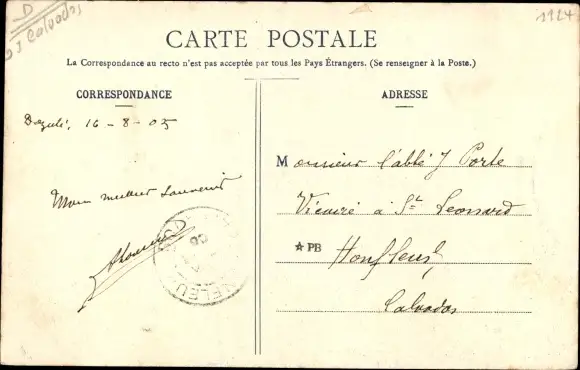 D
Calvados
1924
CARTE POSTALE
La Correspondance au recto n'est pas acceptée par tous les Pays Étrangers. (Se renseigner à la Poste.)
CORRESPONDANCE
ADRESSE
16 - 8 - 05
Mon meilleur souvenir
Monsieur l'abbé J Porte
Vicaire à St Leonard
PB
Honfleur
Calvados